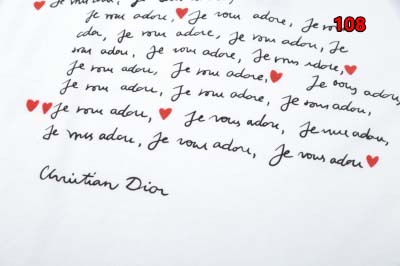 je vous adore, Je
je vous adore, ♥ Je vous adore, Je vous
adore, Je vous adore, Je vous adore, Je
vous adore, Je vous adore, Je vous adore, ♥
Je vous adore, Je vous adore, ♥ Je vous adore,
Je vous adore, Je vous adore, Je vous adore,
♥♥ Je vous adore, ♥ Je vous adore, Je vous adore,
Je vous adore, Je vous adore, Je vous adore ♥
Christian Dior
108